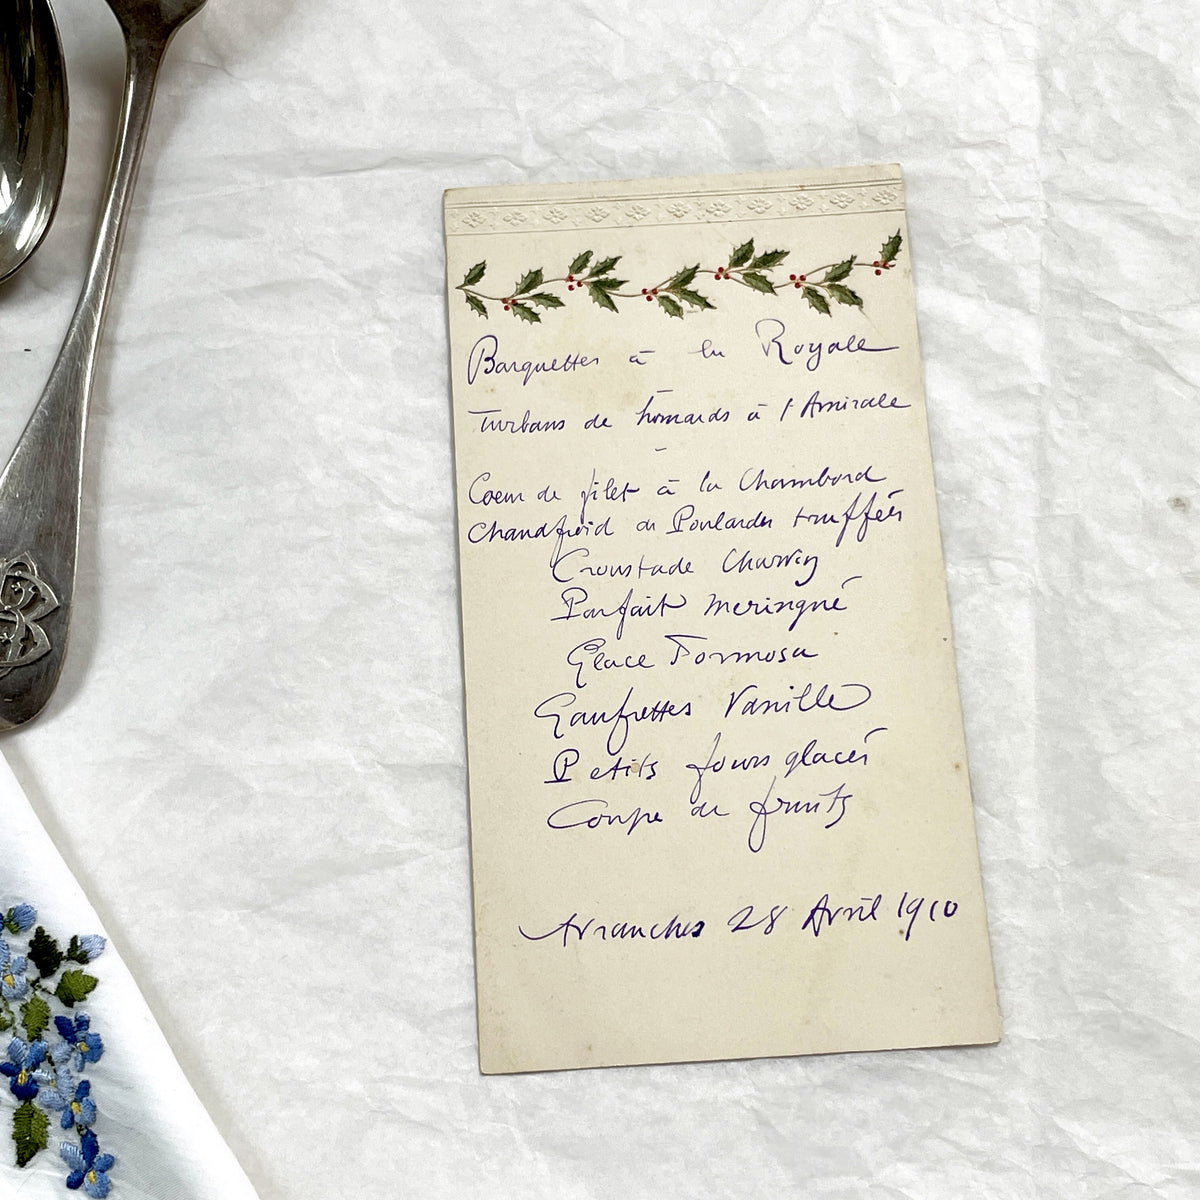 Barquettes à la Royale
Turbans de homards à l'Amirale
Coeur de filet à la Chambord
Chaudfroid de Poulardes truffées
Croustade
Parfait meringué
Glace Formosa
Gaufrettes Vanille
Petits fours glacés
Coupe de fruits
Avranches 28 Avril 1910